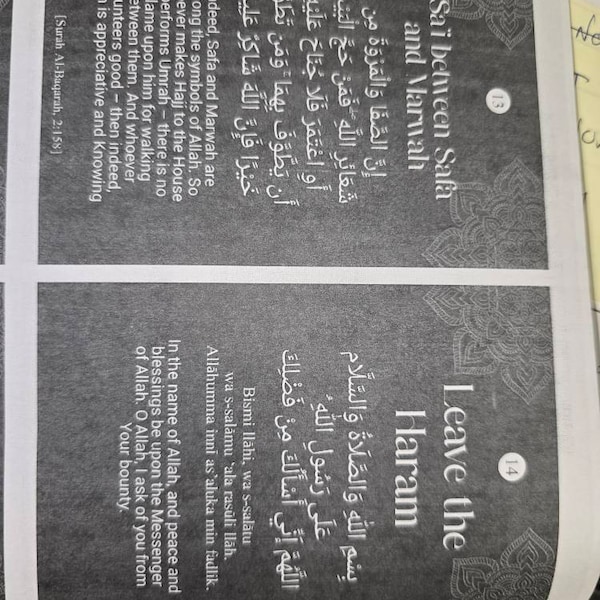 13
Sa'i between Safa
and Marwah
إِنَّ الصَّفَا وَالْمَرْوَةَ مِن
شَعَائِرِ اللَّهِ ۖ فَمَنْ حَجَّ
أَوِ اعْتَمَرَ فَلَا جُنَاحَ
أَن يَطَّوَّفَ بِهِمَا ۚ وَمَن
خَيْرًا فَإِنَّ اللَّهَ شَاكِرٌ
ndeed, Safa and Marwah are
ong the symbols of Allah. So
ever makes Hajj to the House
performs Umrah – there is no
lame upon him for walking
etween them. And whoever
unteers good – then indeed,
is appreciative and Knowing
[Surah Al-Baqarah, 2:158]
14
Leave the
Haram
بِسْمِ اللَّهِ وَالصَّلَاةُ وَالسَّلَام
عَلَى رَسُولِ اللَّهِ
اللَّهُمَّ إِنِّي أَسْأَلُكَ مِنْ فَضْلِكَ
Bismi llāhi, wa ṣ-ṣalātu
wa s-salāmu 'ala rasūli llāh.
Allāhumma innī as'aluka min faḍlik.
In the name of Allah, and peace and
blessings be upon the Messenger
of Allah. O Allah, I ask of you from
Your bounty.